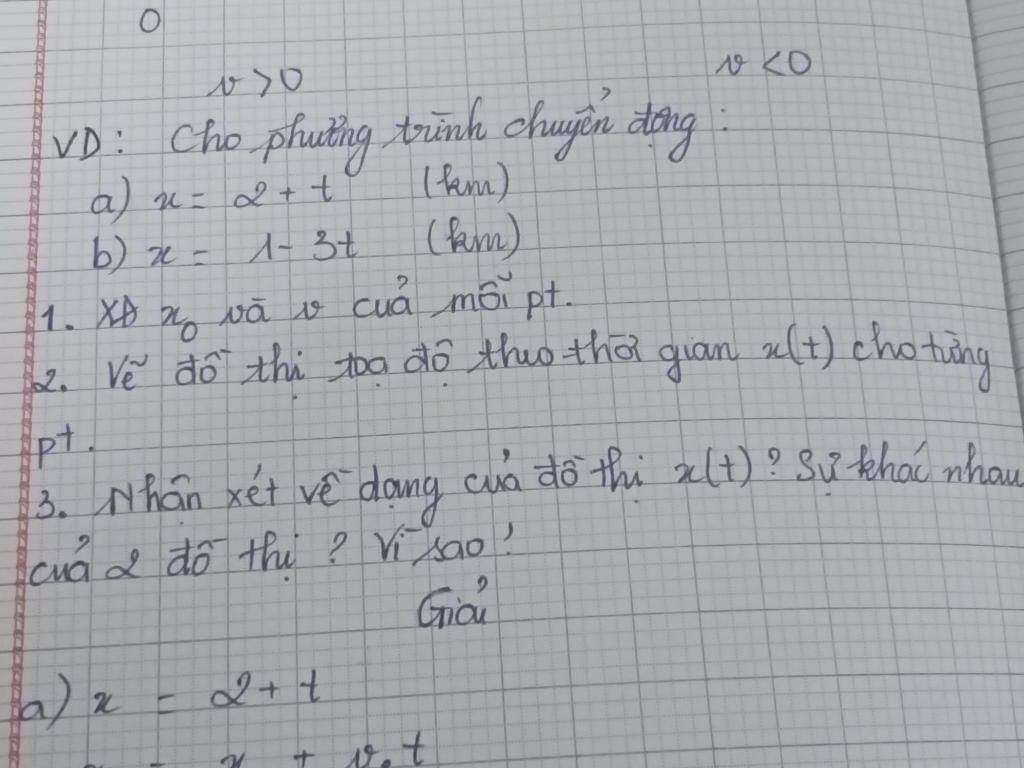 0
v > 0
v < 0
VD: Cho phương trình chuyển động:
a) x = 2 + t (km)
b) x = 1 - 3t (km)
1. XĐ x₀ và v của mỗi pt.
2. Vẽ đồ thị toạ độ theo thời gian x(t) cho từng
pt.
3. Nhận xét về dạng của đồ thị x(t)? Sự khác nhau
của 2 đồ thị? Vì sao?
Giải
a) x = 2 + t
x + v.t